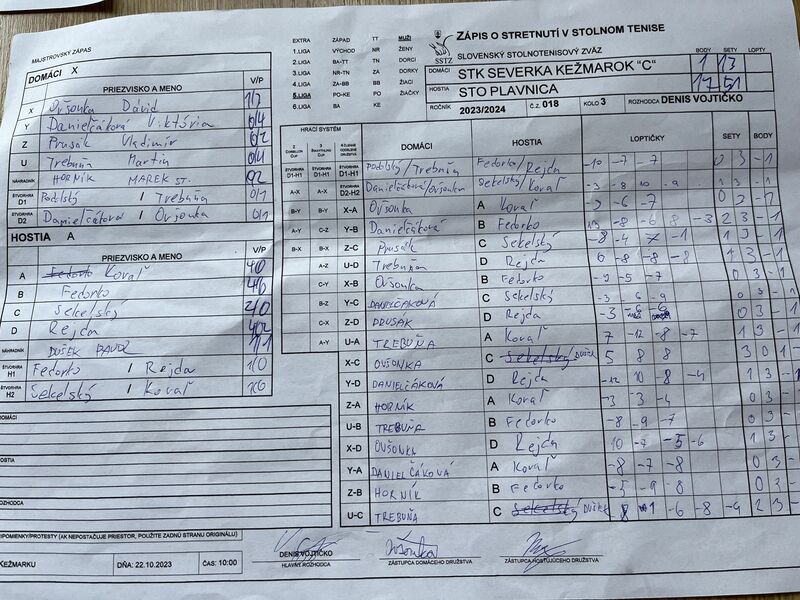 MAJSTROVSKÝ ZÁPAS
EXTRA ZÁPAD TT MUŽI
1.LIGA VÝCHOD NR ŽENY
2.LIGA BA-TT TN DORCI
3.LIGA NR-TN ZA DORKY
4.LIGA ZA-BB BB ŽIACI
5.LIGA PO-KE PO ŽIAČKY
6.LIGA BA KE
SSTZ
ZÁPIS O STRETNUTÍ V STOLNOM TENISE
SLOVENSKÝ STOLNOTENISOVÝ ZVÄZ
BODY SETY LOPTY
DOMÁCI STK SEVERKA KEŽMAROK "C" 1 13
HOSTIA STO PLAVNICA 17 51
ROČNÍK 2023/2024 Č.Z. 018 KOLO 3 ROZHODCA DENIS VOJTIČKO
DOMÁCI X
PRIEZVISKO A MENO V/P
X Ovšonka Dávid 1/3
Y Danielčáková Viktória 0/4
Z Prusák Vladimír 0/2
U Trebuňa Martin 0/4
NÁHRADNÍK HORNÍK MAREK ST. 0/2
ŠTVORHRA D1 Podolský / Trebuňa 0/1
ŠTVORHRA D2 Danielčáková / Ovšonka 0/1
HOSTIA A
PRIEZVISKO A MENO V/P
A Fedorko Kovaľ 4/0
B Fedorko 4/0
C Sekelský 2/0
D Rejda 4/0
NÁHRADNÍK DUŠEK 1/1
ŠTVORHRA H1 Fedorko / Rejda 1/0
ŠTVORHRA H2 Sekelský / Kovaľ 1/0
HRACÍ SYSTÉM DOMÁCI HOSTIA LOPTIČKY SETY BODY
ŠTVORHRA D1-H1 ŠTVORHRA D1-H1 ŠTVORHRA D1-H1 Podolský/Trebuňa Fedorko/Rejda -10 -7 -7 0 3 -1
A-X A-X ŠTVORHRA D2-H2 Danielčáková/Ovšonka Sekelský/Kovaľ -3 -8 10 -9 1 3 -1
B-Y B-Y X-A Ovšonka A Kovaľ -6 -7 0 3 -1
C-Z Y-B Danielčáková B Fedorko -8 -6 8 -3 2 3 -1
B-X A-Y Z-C Prusák C Sekelský -8 -4 7 -1 1 3 -1
A-Z U-D Trebuňa D Rejda 6 -8 -8 -8 1 3 -1
X-B Ovšonka B Fedorko -9 -5 -7 0 3 -1
C-Y Y-C DANIELČÁKOVÁ C Sekelský -3 -6 -9 0 3 -1
C-X Z-D PRUSÁK D Rejda -3 0 3 -1
A-Y U-A TREBUŇA A Kovaľ 7 -12 -8 -7 1 3 -1
X-C OVŠONKA C Sekelský DUŠEK 5 8 8 3 0 1 -
Y-D DANIELČÁKOVÁ D Rejda -12 10 -8 -4 1 3 -1
Z-A HORNÍK A Kovaľ -3 -3 -4 0 3 -1
U-B TREBUŇA B Fedorko -8 -9 -7 0 3 -1
X-D OVŠONKA D Rejda 10 -7 -5 -6 1 3 -1
Y-A DANIELČÁKOVÁ A Kovaľ -8 -7 -8 0 3 -
Z-B HORNÍK B Fedorko -5 -9 8 0 3 -
U-C TREBUŇA C Sekelský DUŠEK -6 -8 -9 2 3 -
DOMÁCI
HOSTIA
ROZHODCA
PRIPOMIENKY/PROTESTY (AK NEPOSTAČUJE PRIESTOR, POUŽITE ZADNÚ STRANU ORIGINÁLU)
KEŽMARKU DŇA: 22.10.2023 ČAS: 10:00
DENIS VOJTIČKO
HLAVNÝ ROZHODCA
Ovšonka
ZÁSTUPCA DOMÁCEHO DRUŽSTVA
ZÁSTUPCA HOSŤUJÚCEHO DRUŽSTVA